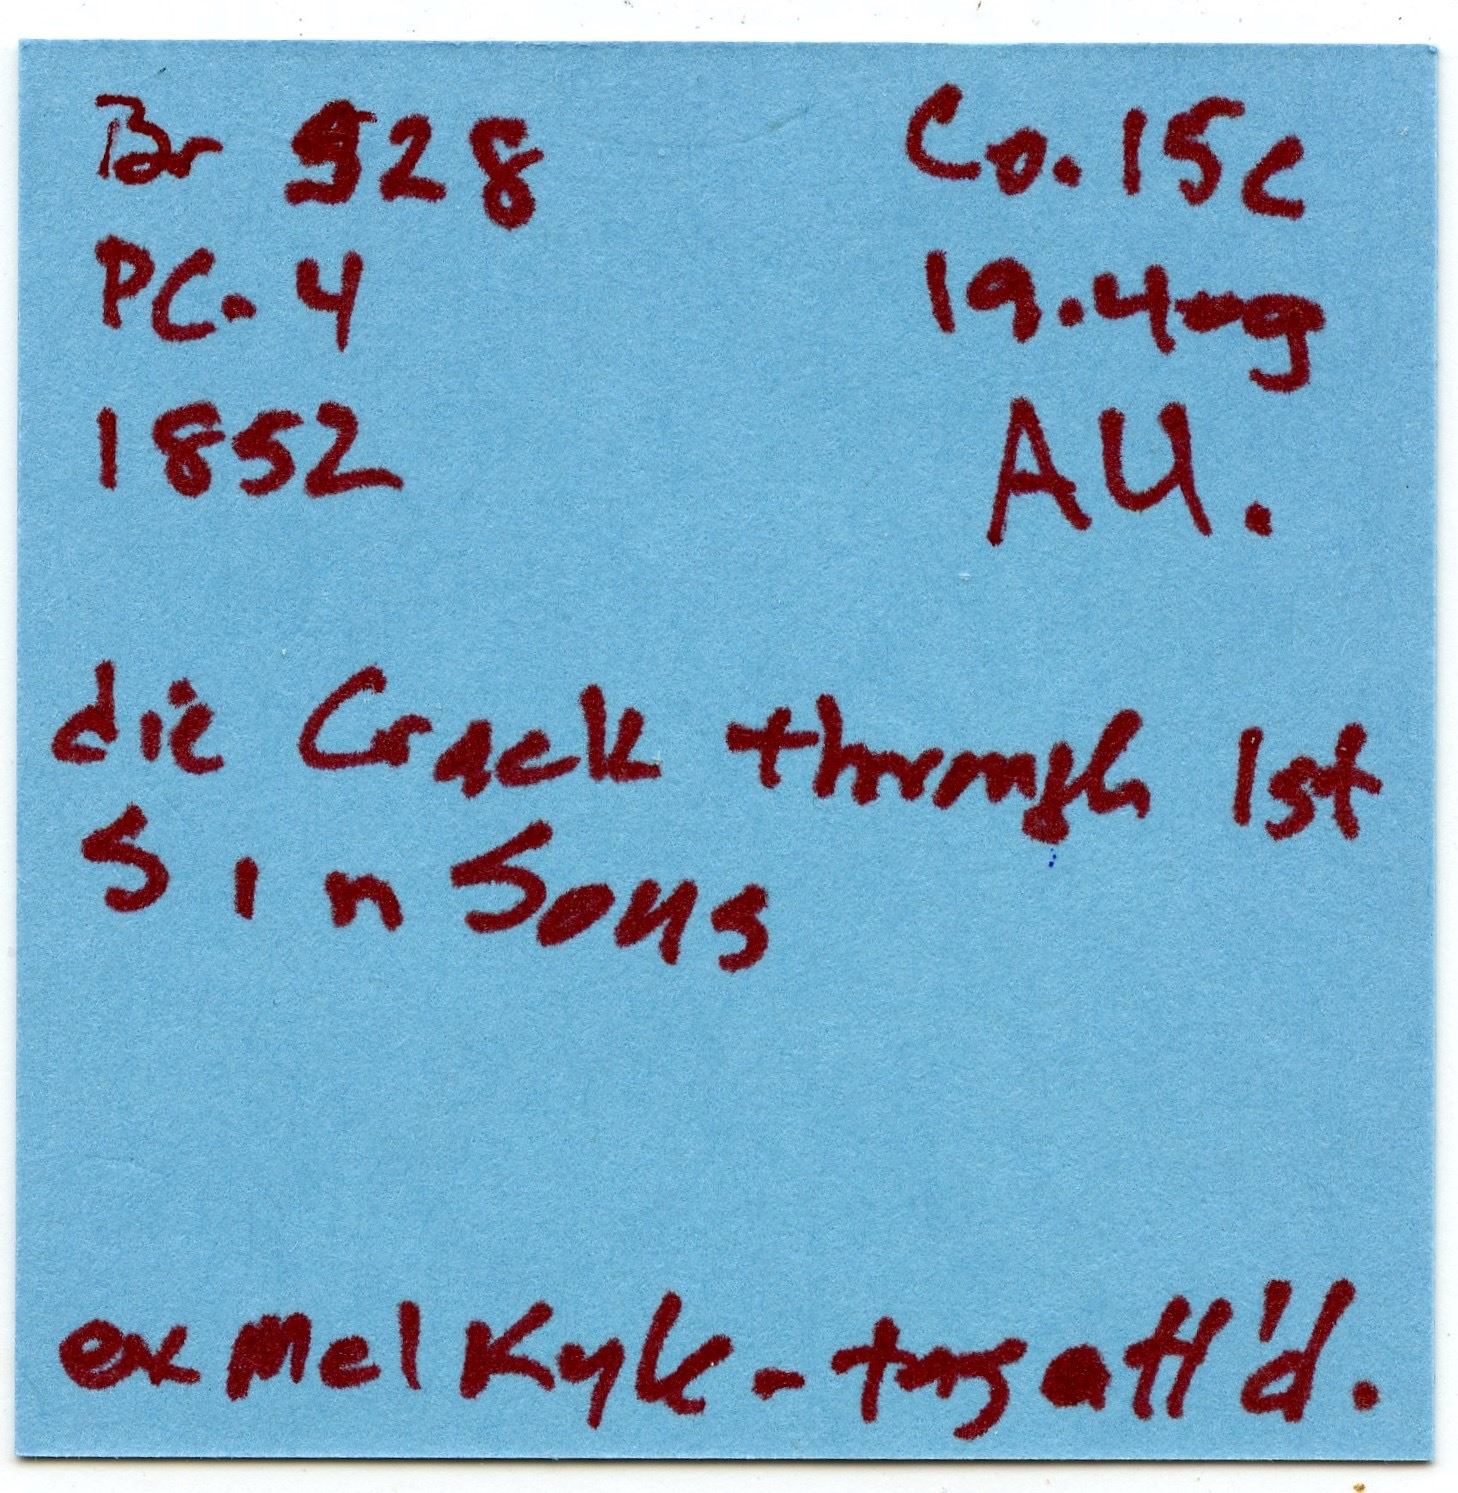 Br 528 Co. 15c
PC. 4 19.40g
1852 AU.
die Crack through 1st
S in Sous
ex Mel Kyle - tag att'd.